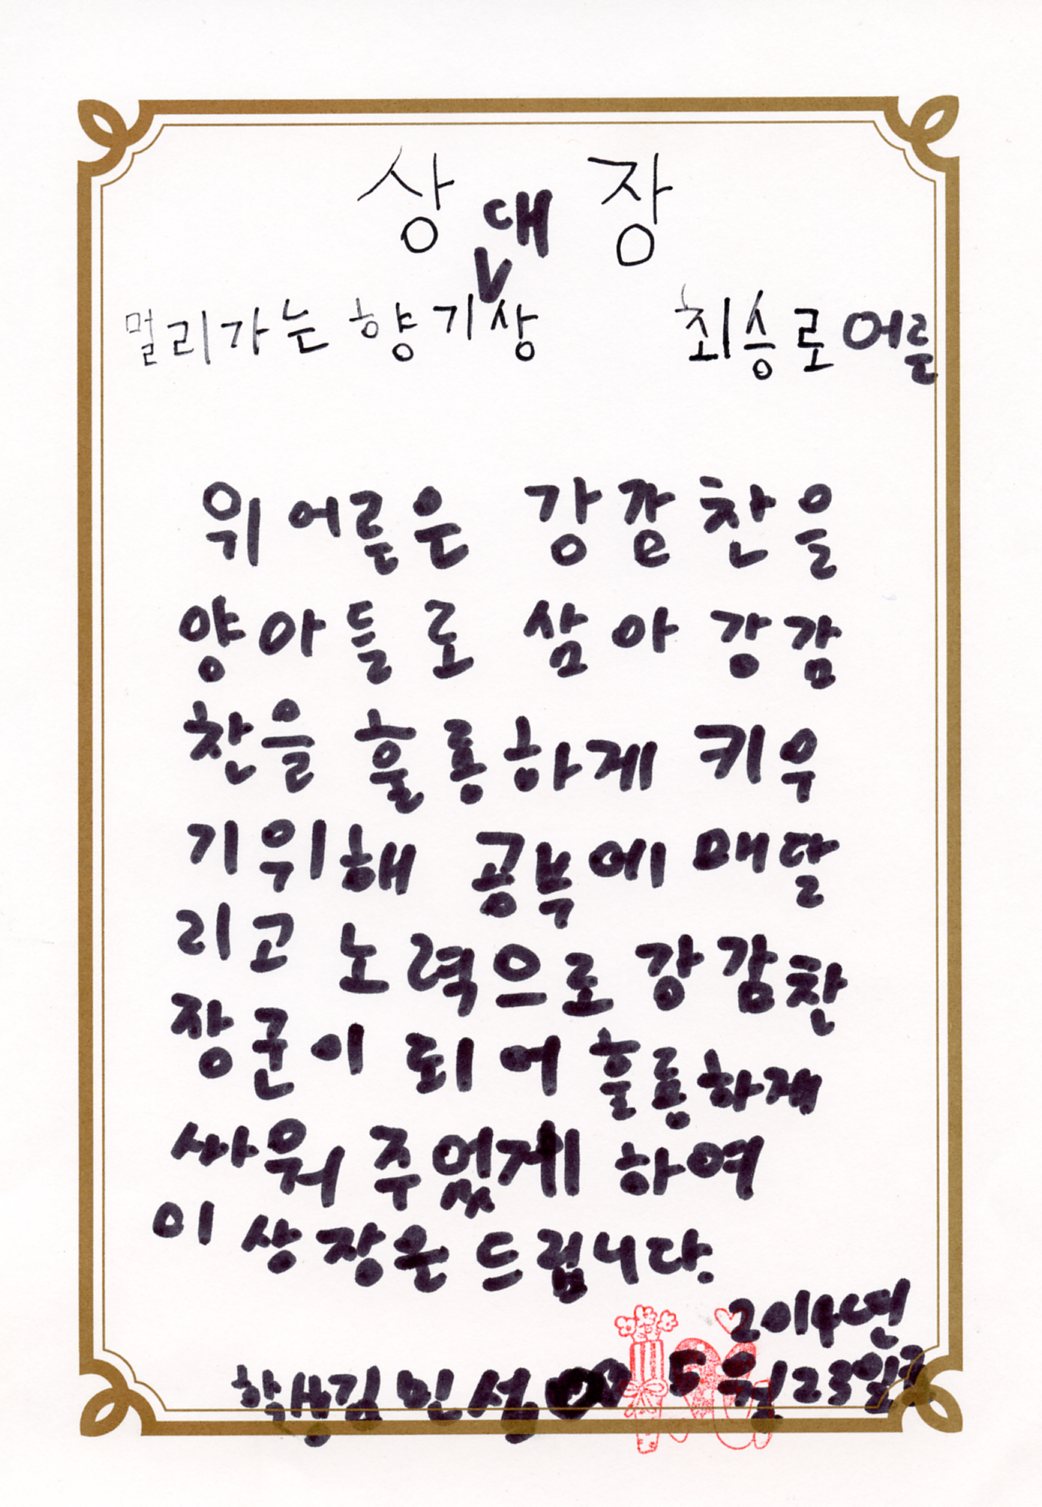 상 장
대
V
멀리가는 향기상 최승로 어른
위 어른은 강감찬을
양아들로 삼아 강감
찬을 훌륭하게 키우
기위해 공부에 매달
리고 노력으로 강감찬
장군이 되어 훌륭하게
싸워 주었게 하여
이 상장은 드립니다.
2014년
학생 김민석 5월 23일